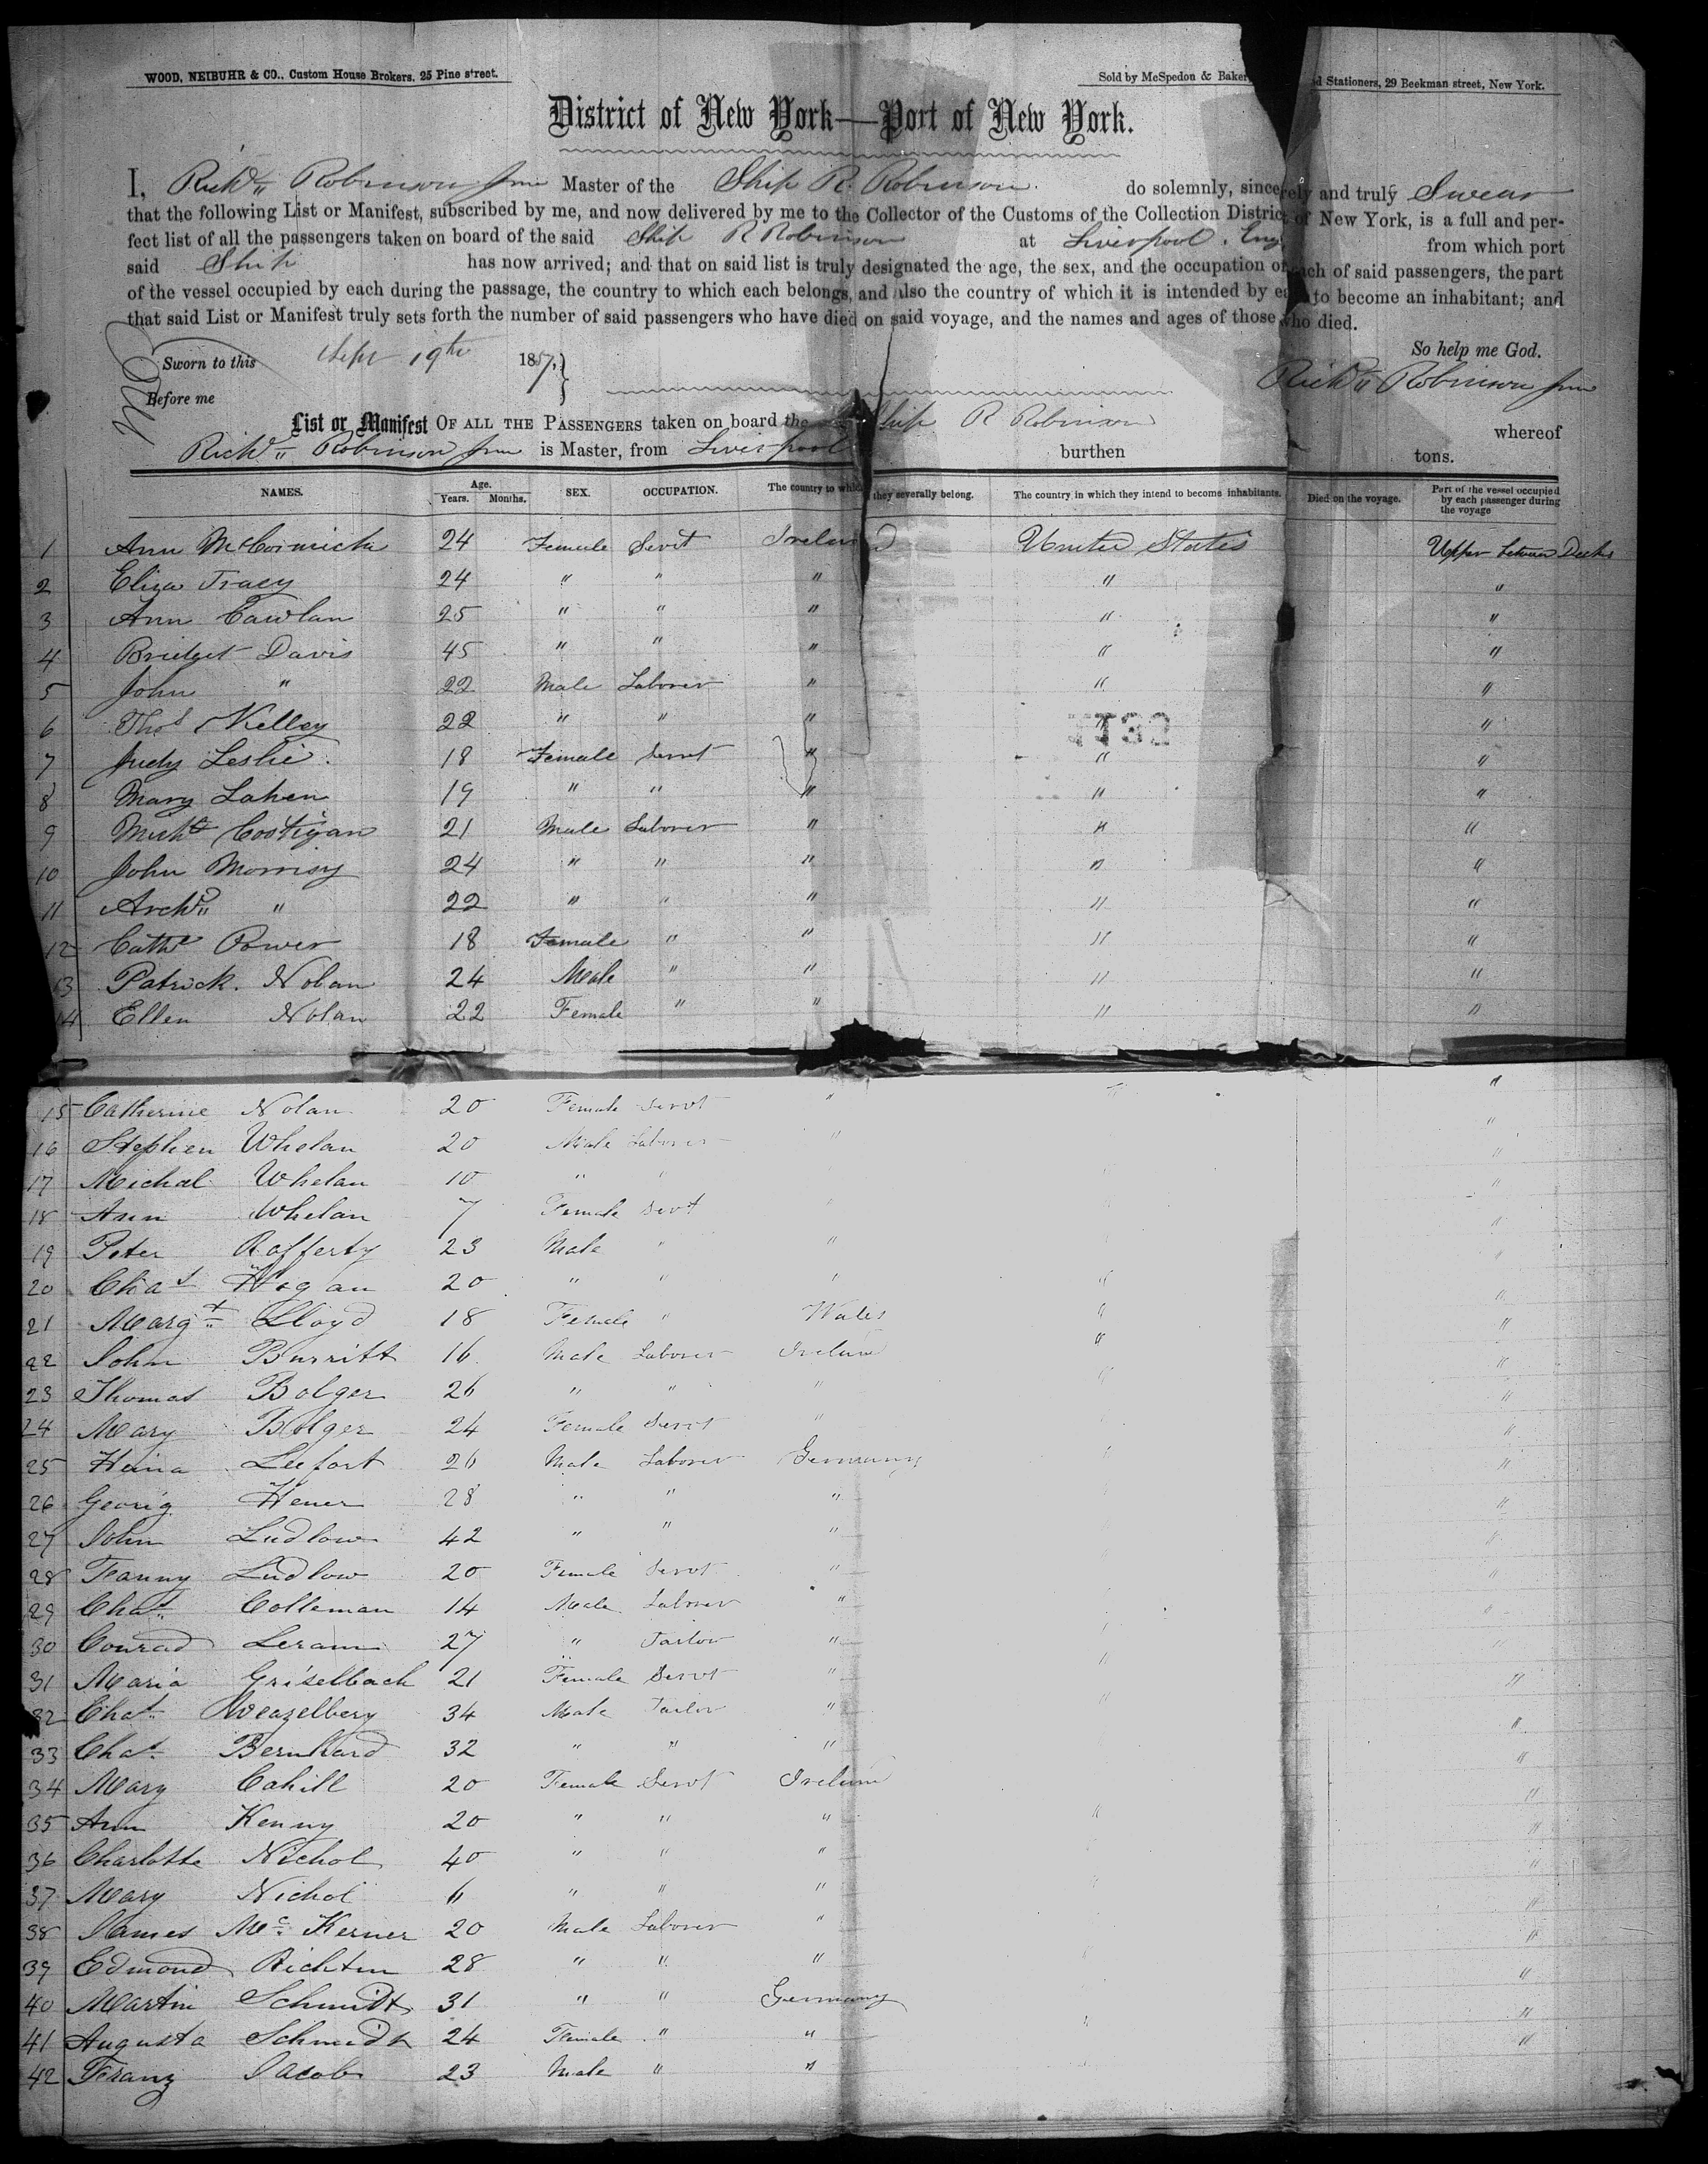 WOOD, NEIBUHR & CO., Custom House Brokers, 25 Pine street.
Sold by McSpedon & Baker, d Stationers, 29 Beekman street, New York.
District of New York—Port of New York.
I, Richd Robinson Jun Master of the Ship R. Robinson. do solemnly, sincerely and truly Swear
that the following List or Manifest, subscribed by me, and now delivered by me to the Collector of the Customs of the Collection District of New York, is a full and per-
fect list of all the passengers taken on board of the said Ship R Robinson at Liverpool. Eng from which port
said Ship has now arrived; and that on said list is truly designated the age, the sex, and the occupation of each of said passengers, the part
of the vessel occupied by each during the passage, the country to which each belongs, and also the country of which it is intended by each to become an inhabitant; and
that said List or Manifest truly sets forth the number of said passengers who have died on said voyage, and the names and ages of those who died.
So help me God.
Sworn to this Sept 19th 1857.
Richd Robinson Jun
Before me
List or Manifest OF ALL THE PASSENGERS taken on board the Ship R Robinson whereof
Richd Robinson Jun is Master, from Liverpool burthen tons.
NAMES. Age. Years. Months. SEX. OCCUPATION. The country to which they severally belong. The country in which they intend to become inhabitants. Died on the voyage. Part of the vessel occupied by each passenger during the voyage
1 Ann McCormick 24 Female Servt Ireland United States Upper between Decks
2 Eliza Tracy 24 " " " " "
3 Ann Cawlan 25 " " " " "
4 Bridget Davis 45 " " " " "
5 John " 22 Male Laborer " " "
6 Thos Kelley 22 " " " " "
7 Judy Leslie 18 Female Servt " " "
8 Mary Lahen 19 " " " " "
9 Michl Costigan 21 Male Laborer " " "
10 John Morrisy 24 " " " " "
11 Archd " 22 " " " " "
12 Cathe Power 18 Female " " " "
13 Patrick Nolan 24 Male " " " "
14 Ellen Nolan 22 Female " " " "
15 Catherine Nolan 20 Female Servt " " "
16 Stephen Whelan 20 Male Laborer " "
17 Michal Whelan 10 " " "
18 Ann Whelan 7 Female Servt "
19 Peter Rafferty 23 Male " " "
20 Chas Hogan 20 " " " " "
21 Margt Lloyd 18 Female " Wales " "
22 John Burritt 16 Male Laborer Ireland " "
23 Thomas Bolger 26 " " " " "
24 Mary Bolger 24 Female Servt " "
25 Heina Leefort 26 Male Laborer Germany " "
26 Georig Hener 28 " " " "
27 John Ludlow 42 " " " "
28 Fanny Ludlow 20 Female Servt " "
29 Chas Colleman 14 Male Laborer " "
30 Conrad Leram 27 " Tailor "
31 Maria Griselbach 21 Female Servt " " "
32 Chas Weazelberg 34 Male Tailor " "
33 Chas Bernhard 32 " " " "
34 Mary Cahill 20 Female Servt Ireland "
35 Ann Kenny 20 " " " " "
36 Charlotte Nichol 40 " " " "
37 Mary Nichol 6 " " " "
38 James Mc Kerner 20 Male Laborer " "
39 Edmond Richten 28 " " " "
40 Martin Schmidt 31 " " Germany "
41 Augusta Schmidt 24 Female " " "
42 Franz Jacob 23 Male " "